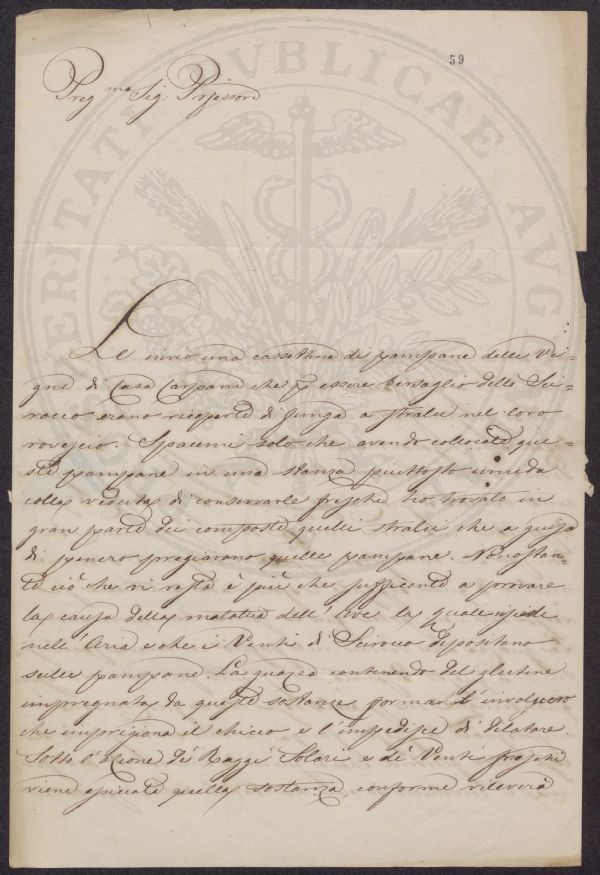 59
Preg.mo Sig: Professore
Le invio una cassettina di pampane delle Vi-
gne di Casa Carpana che p essere bersaglio dello Sci-
rocco erano ricoperte di funga a stralci nel loro
rovescio. Spacemi solo che avendo collocate que-
ste pampane in una stanza piuttosto umida
colla veduta di conservarle fresche ho trovato in
gran parte dei composte quelli stralci che a guisa
di penero pregiavano quelle pampane. Nonostan-
te ciò che vi resta è più che sufficente a provare
la causa della malatia dell'uve la quale risiede
nell'Aria e che i Venti di Scirocco depositano
sulle pampane. La guazza contenendo del glutine
impregnata da queste sostanze forma l'involucro
che imprigiona il chicco e l'impedisce di dilatare.
Sotto l'azione de' Raggi Solari e de' Venti freschi
viene essiccata quella sostanza, conforme rileverà
VERITATI PVBLICAE AVGE